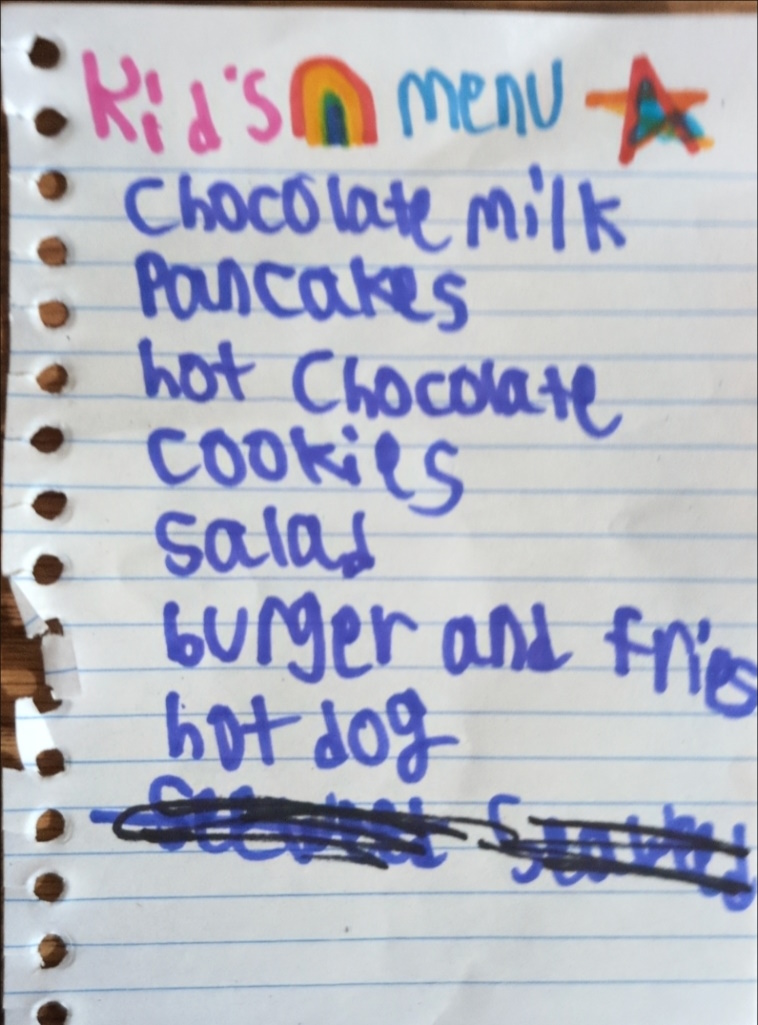 Kid's menu
Chocolate milk
Pancakes
hot Chocolate
cookies
salad
burger and fries
hot dog